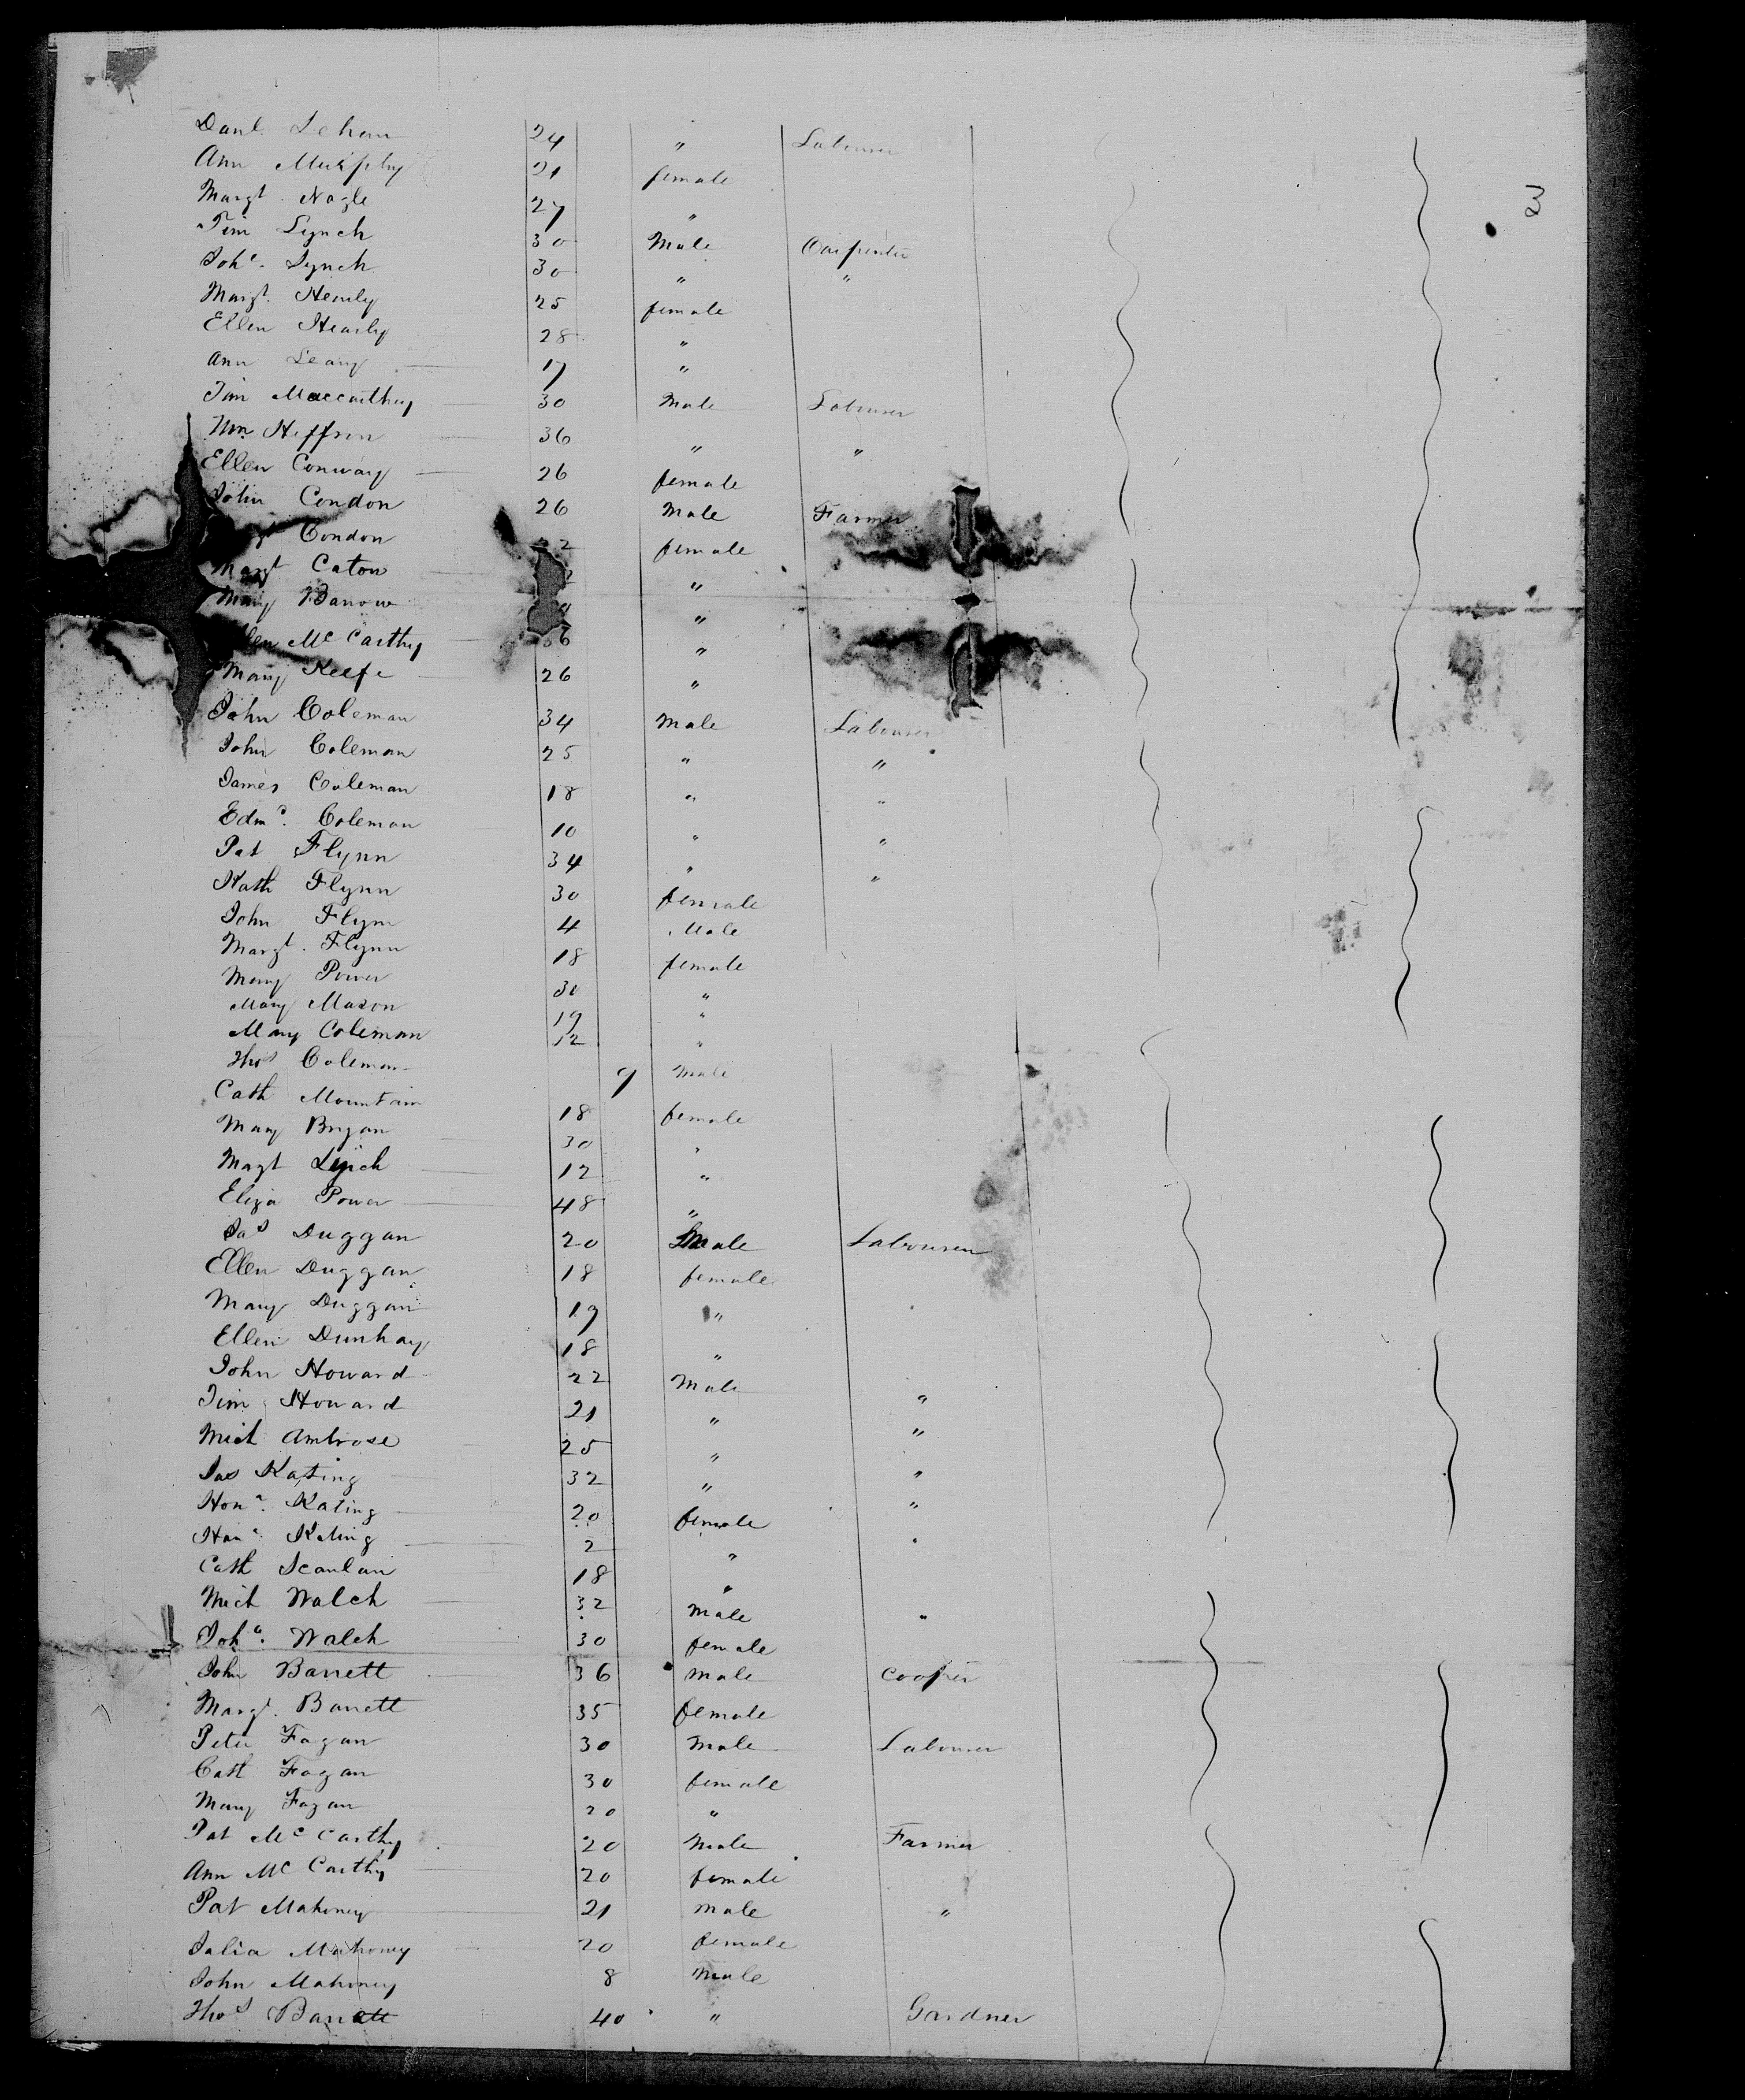 3
Danl. Lehan 24 " Labourer
Ann Murphy 21 female
Margt. Nagle 27 "
Tim Lynch 30 Male Carpenter
Joha. Lynch 30 " "
Margt. Hearly 25 female
Ellen Hearly 28 "
Ann Leary 17 "
Tim Maccarthy 30 Male Labourer
Wm Heffron 36 " "
Ellen Conway 26 female
John Condon 26 Male Farmer
Condon female
Margt Caton "
Mary Barrow "
McCarthy 36 "
Mary Keefe 26 "
John Coleman 34 Male Labourer
John Coleman 25 " "
James Coleman 18 " "
Edmd. Coleman 10 " "
Pat Flynn 34 " "
Kath Flynn 30 female
John Flynn 4 Male
Margt. Flynn 18 female
Mary Power 30 "
Mary Mason 19 "
Mary Coleman 12 "
Thos Coleman 9 Male
Cath Mountain 18 female
Mary Bryan 30 "
Magt Lynch 12 "
Eliza Power 48 "
Jas Duggan 20 Male Labourer
Ellen Duggan 18 female
Mary Duggan 19 "
Ellen Dunhay 18 "
John Howard 22 Male "
Tim Howard 21 " "
Mich Ambrose 25 " "
Jas Kating 32 " "
Hona. Kating 20 female
Hana. Kating 2 "
Cath Scanlan 18 "
Mich Walch 32 Male "
Joha. Walch 30 female
John Barrett 36 Male Cooper
Margt. Barrett 35 female
Peter Fagan 30 Male Labourer
Cath Fagan 30 female
Mary Fagan 20 "
Pat McCarthy 20 Male Farmer
Ann McCarthy 20 female
Pat Mahoney 21 Male "
Julia Mahoney 20 female
John Mahoney 8 Male
Thos Barrett 40 " Gardner